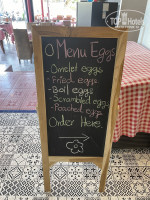 TopHotels
O Menu Eggs
-Omelet eggs
-Fried eggs
-Boil eggs
-Scrambled eggs
-Poached eggs
Order Here